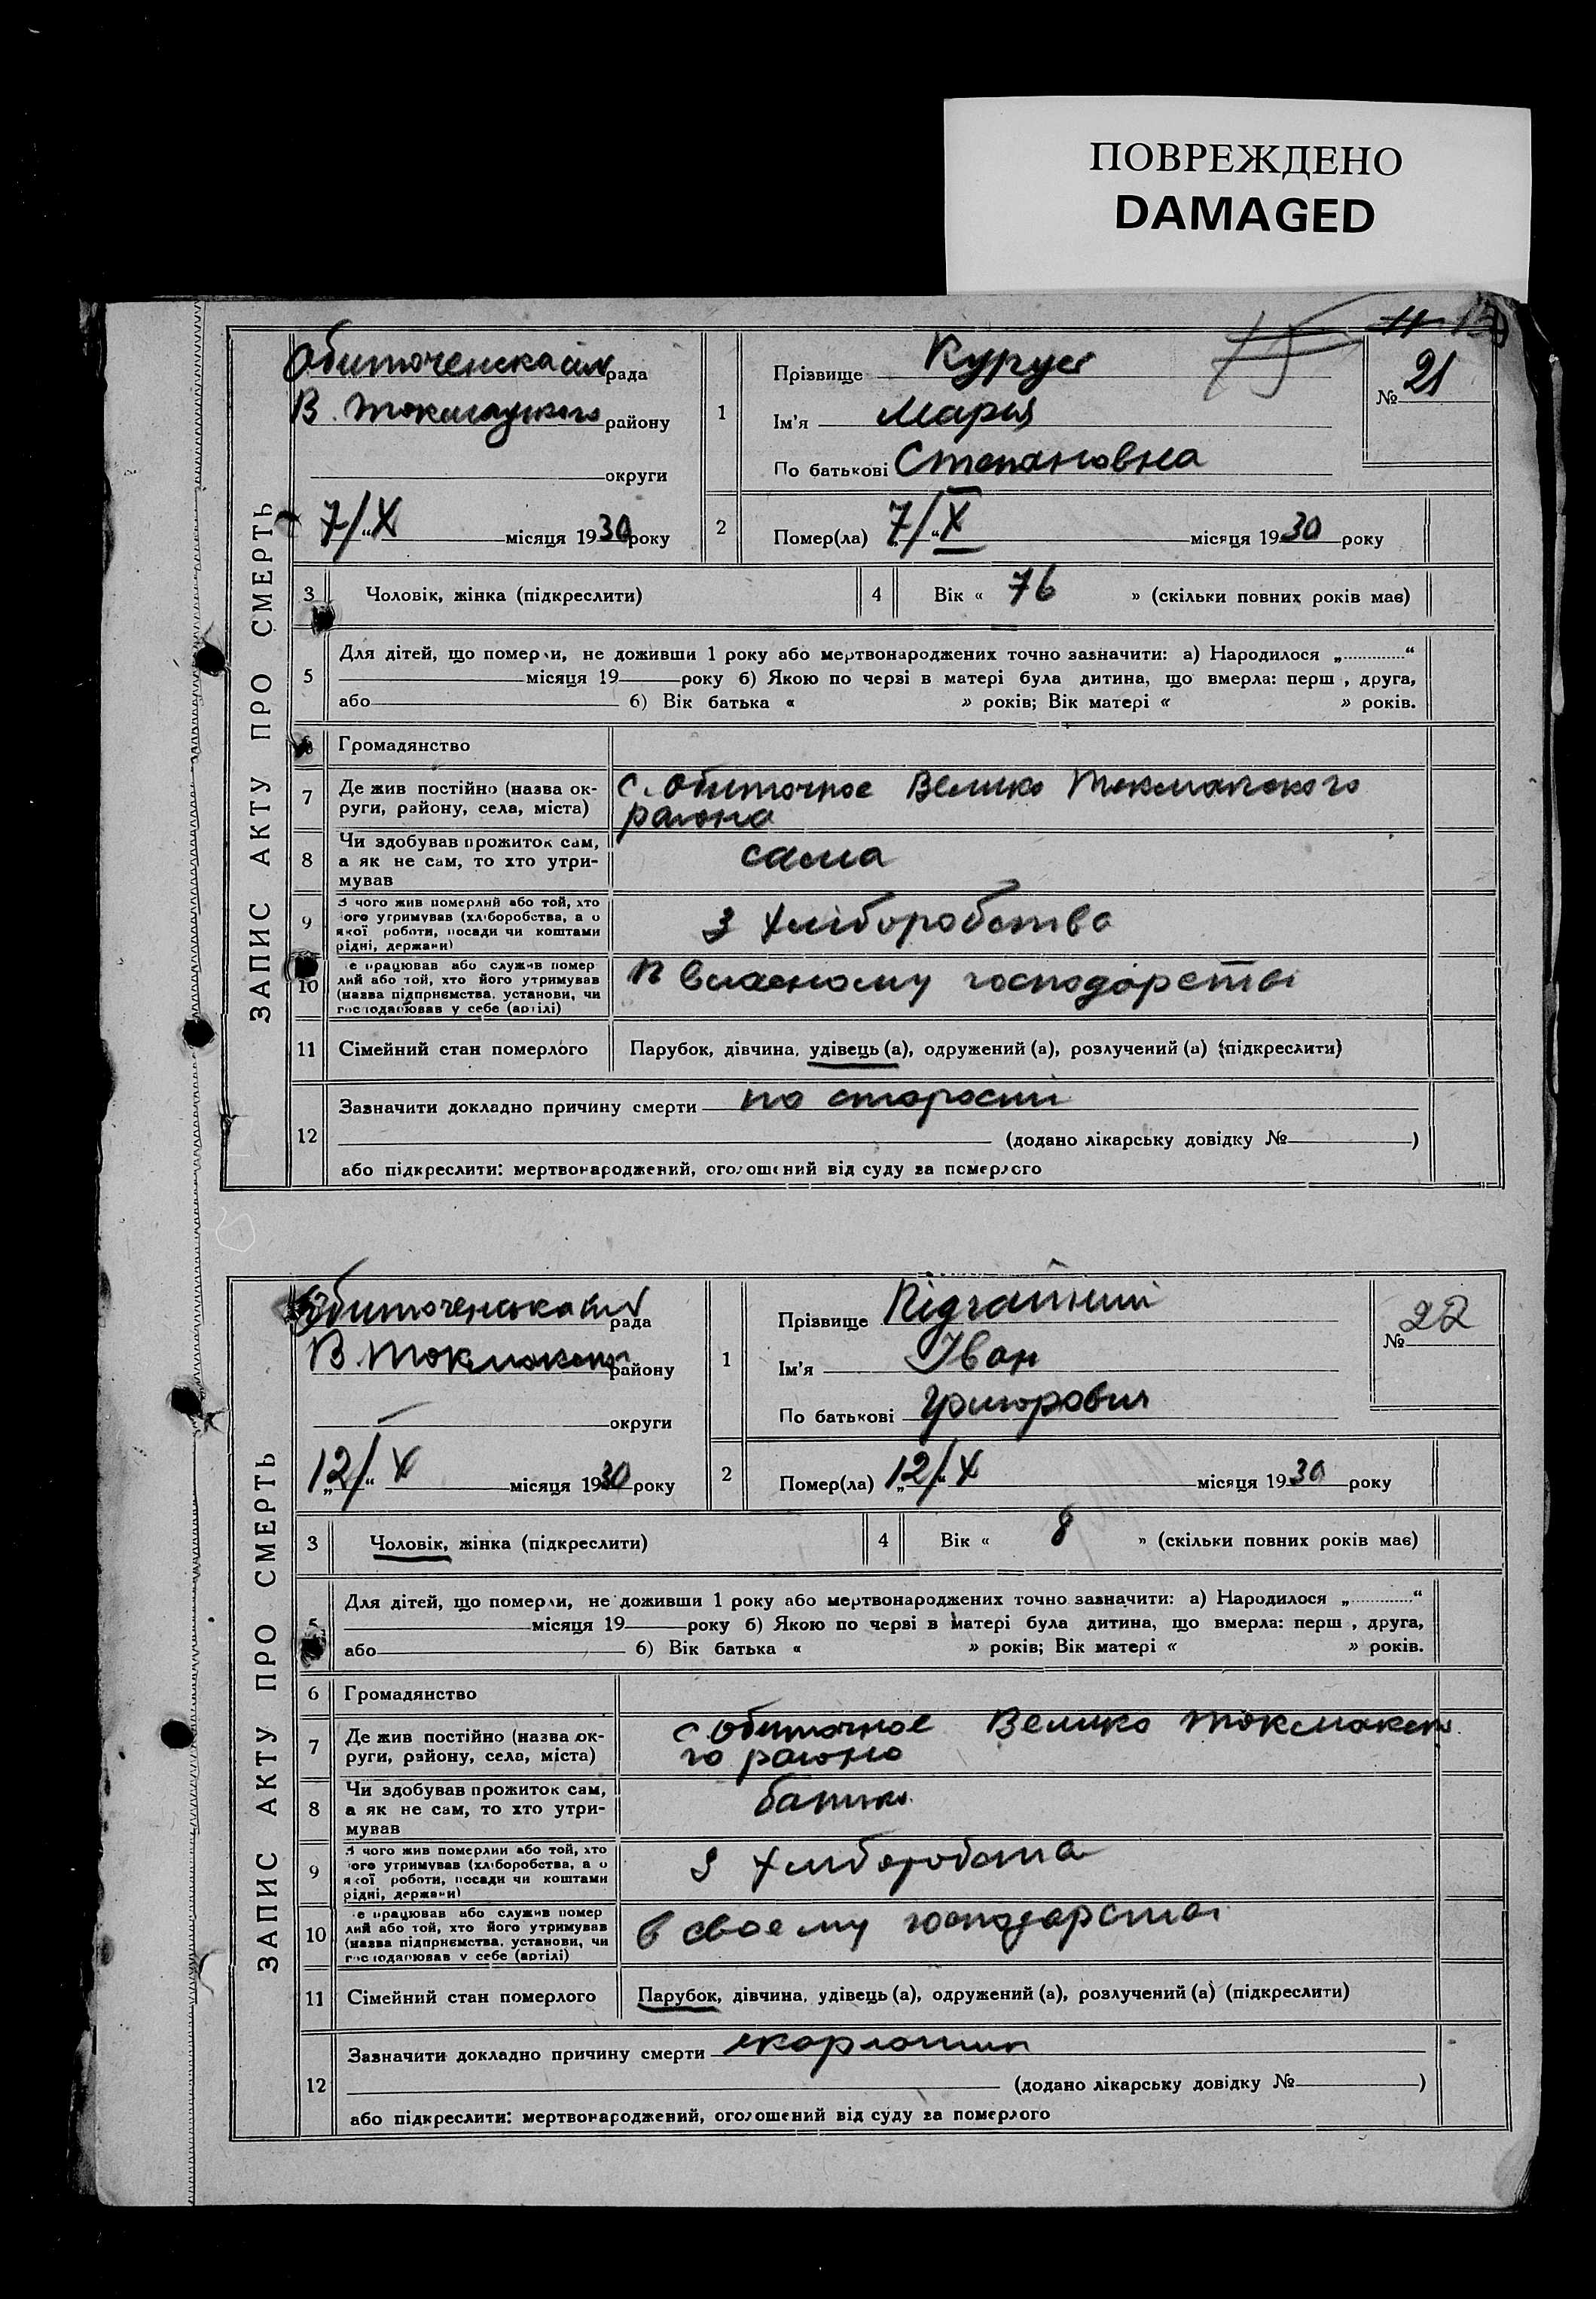 ПОВРЕЖДЕНО
DAMAGED
ЗАПИС АКТУ ПРО СМЕРТЬ
75
№ 21
рада
району
округи
7/X місяця 1930 року
1
Прізвище
Ім'я Мария
По батькові Степановна
2 Помер(ла) 7/X місяця 1930 року
3 Чоловік, жінка (підкреслити)
4 Вік « 76 » (скільки повних років має)
5 Для дітей, що померли, не доживши 1 року або мертвонароджених точно зазначити: а) Народилося „ “
місяця 19 року б) Якою по черві в матері була дитина, що вмерла: перш , друга,
або б) Вік батька « » років; Вік матері « » років.
6 Громадянство
7 Де жив постійно (назва ок-
руги, району, села, міста)
с. Обиточное Велико Токмакского
района
8 Чи здобував прожиток сам,
а як не сам, то хто утри-
мував
сама
9 З чого жив померлий або той, хто
ого утримував (хліборобства, а о
якої роботи, посади чи коштами
рідні, держави)
З хліборобства
10 е працював або служив помер
лий або той, хто його утримував
(назва підприємства, установи, чи
господарював у себе (артілі)
в власному господарстві
11 Сімейний стан померлого
Парубок, дівчина, удівець (а), одружений (а), розлучений (а) (підкреслити)
12 Зазначити докладно причину смерти по старости
(додано лікарську довідку № )
або підкреслити: мертвонароджений, оголошений від суду за померлого
ЗАПИС АКТУ ПРО СМЕРТЬ
№ 22
рада
В. району
округи
12/X місяця 1930 року
1
Прізвище Підгайний
Ім'я Іван
По батькові Григорович
2 Помер(ла) 12/X місяця 1930 року
3 Чоловік, жінка (підкреслити)
4 Вік « 8 » (скільки повних років має)
5 Для дітей, що померли, не доживши 1 року або мертвонароджених точно зазначити: а) Народилося „ “
місяця 19 року б) Якою по черві в матері була дитина, що вмерла: перш , друга,
або б) Вік батька « » років; Вік матері « » років.
6 Громадянство
7 Де жив постійно (назва ок-
руги, району, села, міста)
с Обиточное Велико Токмакско
го района
8 Чи здобував прожиток сам,
а як не сам, то хто утри-
мував
батько
9 З чого жив померлий або той, хто
ого утримував (хліборобства, а о
якої роботи, посади чи коштами
рідні, держави)
З
10 е працював або служив помер
лий або той, хто його утримував
(назва підприємства, установи, чи
господарював у себе (артілі)
в своему господарстві
11 Сімейний стан померлого
Парубок, дівчина, удівець (а), одружений (а), розлучений (а) (підкреслити)
12 Зазначити докладно причину смерти
(додано лікарську довідку № )
або підкреслити: мертвонароджений, оголошений від суду за померлого